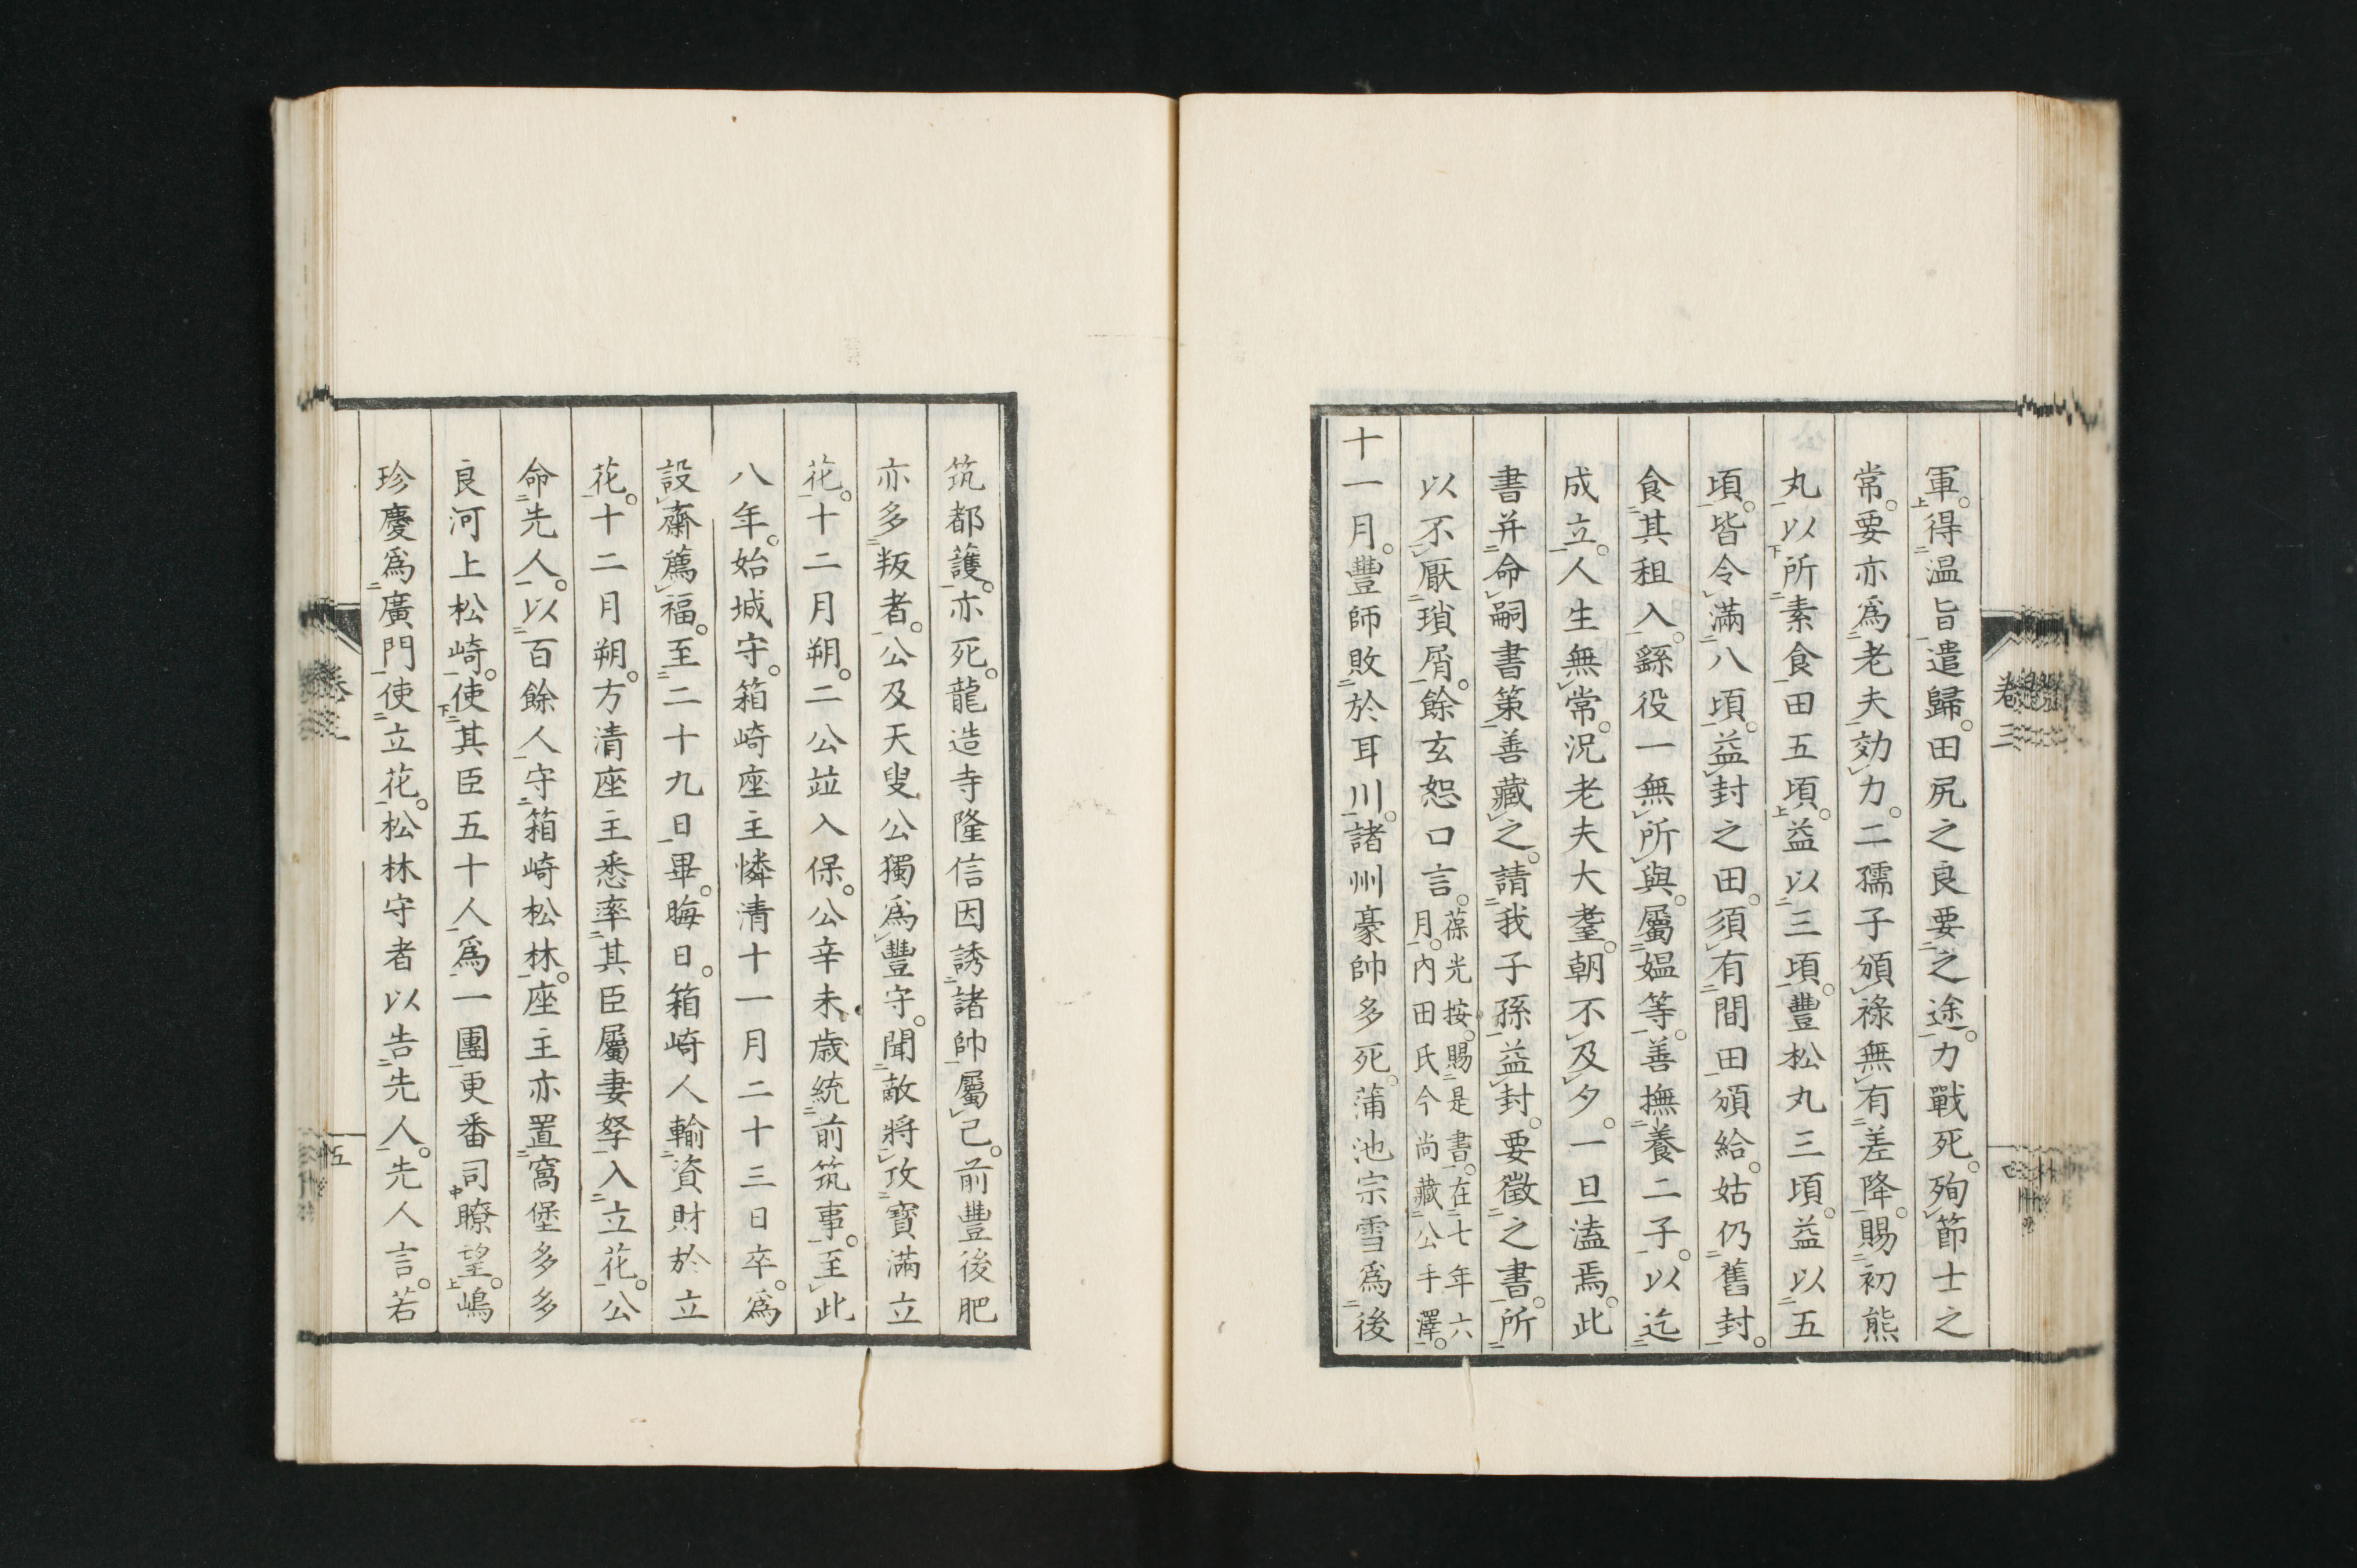 軍。得温旨遣歸。田尻之良要之途。力戰死。殉節士之
常。要亦爲老夫効力。二孺子頒祿無有差降。賜初熊
丸以所素食田五頃。益以三頃。豐松丸三頃。益以五
頃。皆令滿八頃。益封之田。須有間田頒給。姑仍舊封。
食其租入。繇役一無所與。屬媪等。善撫養二子。以迄
成立。人生無常。況老夫大耋。朝不及夕。一旦溘焉。此
書并命嗣書策善藏之。請我子孫益封。要徵之書。所
以不厭瑣屑。餘玄恕口言。葆光按。賜是書。在七年六
月。内田氏今尚藏公手澤。
十一月。豐師敗於耳川。諸州豪帥多死。蒲池宗雪爲後
卷三
筑都護。亦死。龍造寺隆信因誘諸帥屬己。前豐後肥
亦多叛者。公及天叟公獨爲豐守。聞敵將攻寳滿立
花。十二月朔。二公竝入保。公辛未歳統前筑事。至此
八年。始城守。箱崎座主憐清十一月二十三日卒。爲
設齋薦福。至二十九日畢。晦日。箱崎人輸資財於立
花。十二月朔。方清座主悉率其臣屬妻孥入立花。公
命先人。以百餘人守箱崎松林。座主亦置窩堡多多
良河上松崎。使其臣五十人爲一團更番司瞭望。嶋
珍慶爲廣門使立花。松林守者以告先人。先人言。若
卷三
五